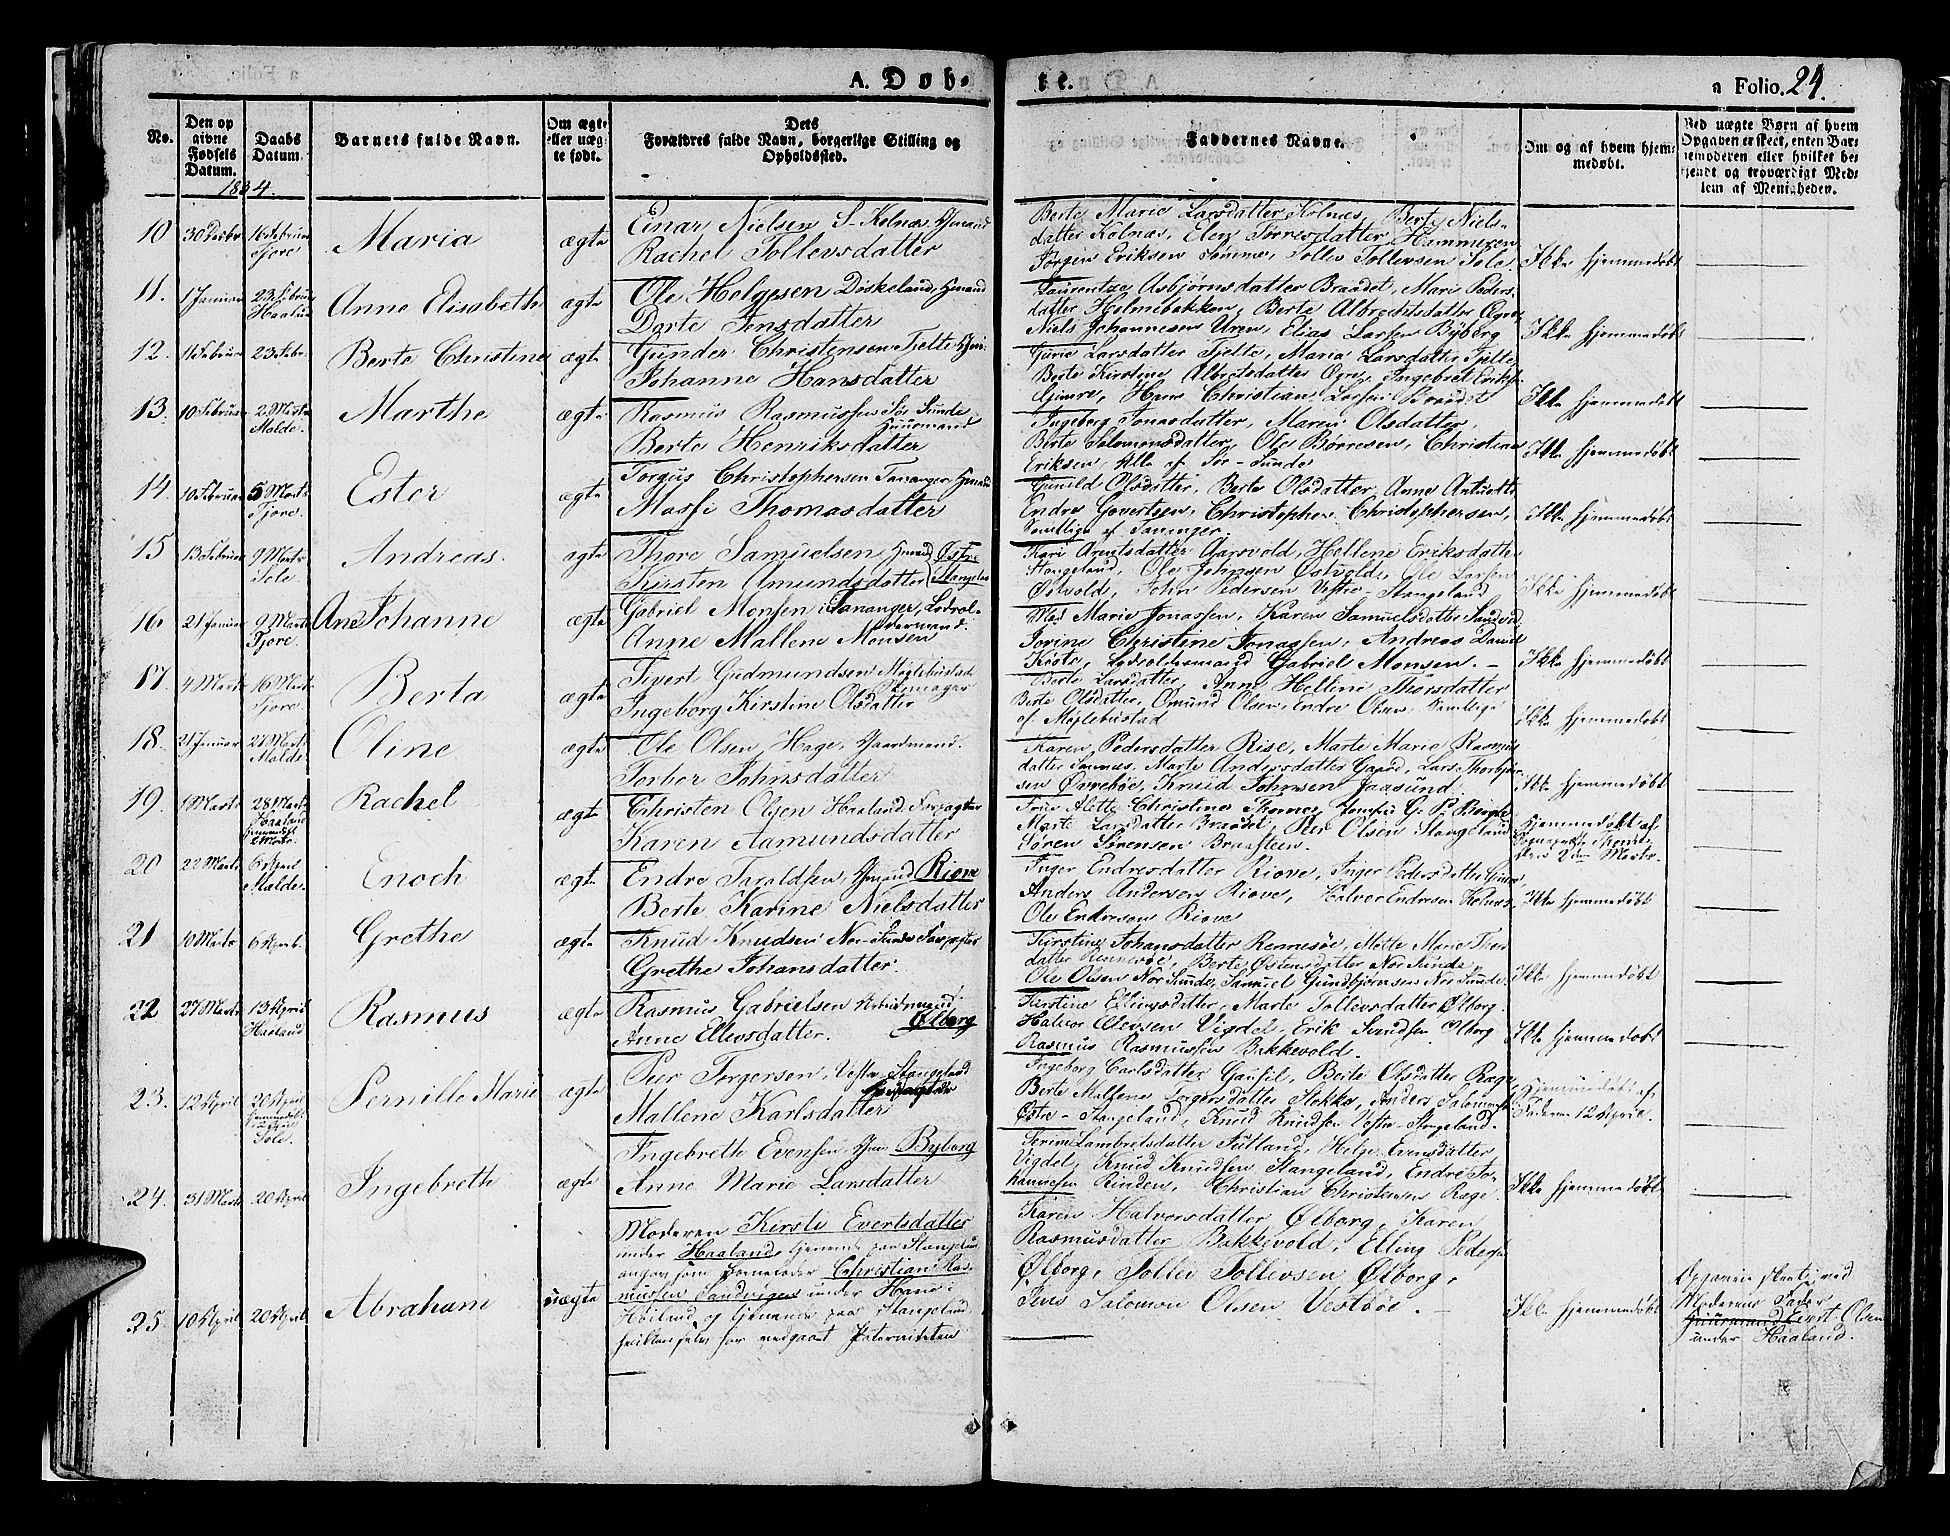 A. Døb-
te.
a Folio. 24.
No.
Den op
givne
Fødsels
Datum.
Daabs
Datum.
Barnets fulde Navn.
Om ægte
eller uæg-
te født.
Dets
Forældres fulde Navn, borgerlige Stilling og
Opholdssted.
Faddernes Navne.
Om og af hvem hjem-
medøbt.
Ved uægte Børn af hvem
Opgaven er skeet, enten Bar-
nemoderen eller hvilket be-
kjendt og troværdigt Med-
lem af Menigheden.
1834.
10 30 Decbr 16 Februar
Tjore
Maria
ægte
Einar Nielsen S-Kolnæs
Rachel Tollevsdatter
Berte Marie Larsdatter Kolnæs, Berte Niels-
datter Kolnæs, Elen Tørresdatter Hammeren
Jørgen Eriksen Sømme, Tollev Tollevsen Sola
Ikke hjemmedøbt
11. 1 Januar 23 Februar
Haaland
Anne Elisabeth
ægte
Ole Helgesen
Dorte Jensdatter
Laurentze Asbjørnsdatter Braadet, Mari Peders-
datter Holmebakken, Berte Albrechtsdatter
Niels Johannesen Uren, Elias Larsen Byberg
Ikke hjemmedøbt
12. 11 Februar 23 Febr.
Berte Christine
ægte
Gunder Christensen Tjelte
Johanne Hansdatter
Gurie Larsdatter Tjelte, Maria Larsdatter Tjelte
Berte Kirstine
Gimre, Hans Christian Larsen Braadet
Ikke hjemmedøbt
13. 10 Februar 2 Marts
Malde.
Marthe
ægte
Rasmus Rasmussen Sør Sunde
Huusmand
Berte Henriksdatter
Ingeborg Jonasdatter, Maren Olsdatter,
Berte Salomonsdatter, Ole Børresen, Christian
Eriksen, Alle af Sør-Sunde
Ikke hjemmedøbt
14. 10 Februar 5 Marts
Tjore.
Ester
ægte
Torgius Christophersen Tananger
Massi Thomasdatter
Gunild Olsdatter, Berte Olsdatter, Anne
Endre Govertsen, Christopher Christophersen,
Samtlige af Tananger
Ikke hjemmedøbt
15 13 Februar 9 Marts
Sole
Andreas.
ægte
Thore Samuelsen Østre
Kirsten Amundsdatter Stangeland
Kari Arntsdatter Aarsvold, Hellene Eriksdatter
Stangeland, Ole Johnsen Østvold, Ole Larsen
Østvold, John Pedersen Vestre-Stangeland
Ikke hjemmedøbt
16. 21 Januar 9 Marts
Tjore.
Ane Johanne
ægte
Gabriel Monsen Tananger, Lodsol-
dermand.
Anne Mallene Monsen
Marie Jonassen, Karen Samuelsdatter
Jorine Christine Jonassen, Andreas Daniel
Lodsoldermand Gabriel Monsen. -
Ikke hjemmedøbt
17. 4 Marts 16 Marts
Tjore.
Berta
ægte
Sivert Gudmundsen Møglebustad
Ingeborg Kirstine Olsdatter
Berte Larsdatter, Anne Helline Thorsdatter
Berte Olsdatter, Omund Olsen, Endre Olsen Samtlige
af Møglebustad
Ikke hjemmedøbt
18. 21 Januar 21 Marts
Malde.
Oline
ægte
Ole Olsen Hage, Gaardmand.
Torbor Johnsdatter
Karen Pedersdatter Rise, Marte Marie Rasmus-
datter Sømnæs, Marte Andersdatter Gaard, Lars Thorbjørn-
sen Øvrebøe, Knud Johnsen Jaasund.
Ikke hjemmedøbt
19. 1 Marts 28 Marts
Haaland
Hjemmedøbt
2 Marts.
Rachel
ægte
Christen Olsen Haaland Forpagter
Karen Aamundsdatter
Frue Alette Christine
Marte Larsdatter Braadet, Peer Olsen Stangeland
Søren Sørensen Braasteen.
Hjemmedøbt af
2den Marts.
20 22 Marts 6 April
Malde.
Enoch
ægte
Endre Taraldsen Riove
Berte Karine Nielsdatter
Inger Endresdatter Riove, Inger Pedersdatter
Anders Andersen Riove, Halvor Endresen Kolnæs
Ole Endresen Riove
Ikke hjemmedøbt
21 10 Marts 6 April.
Grethe
ægte
Knud Knudsen Nor-Sunde Forpagter
Grethe Johansdatter.
Kirstine Johansdatter Rennesøe, Mette Marie
datter Rennesøe, Berte Østensdatter Nor Sunde,
Ole Olsen Nor Sunde, Samuel Gundbjørnsen Nor Sunde.
Ikke hjemmedøbt
22 27 Marts 13 April
Haaland
Rasmus
ægte
Rasmus Gabrielsen Arbeidsmand
Ølberg
Anne Ellevsdatter.
Kirstine Ellingsdatter, Marte Tollevsdatter Ølberg.
Halvor Olevsen Vigdel, Erik Svendsen Ølberg
Rasmus Rasmussen Bakkevold.
Ikke hjemmedøbt
23. 12 April 20 April
Hjemmedøbt
12 April
Sole.
Pernille Marie
ægte
Peer Torgersen, Vestre Stangeland
Mallene Karlsdatter
Ingeborg Carlsdatter Gausel, Berte Olsdatter Rage
Berte Mallene Torgersdatter Stokke, Anders Salomonsen
Østre-Stangeland, Knud Knudsen Vestre-Stangeland.
Hjemmedøbt af
Faderen 12 April.
24. 31 Marts 20 April
Ingebreth
ægte
Ingebreth Evensen Byberg
Anne Marie Larsdatter
Serine Lambretsdatter Jutland, Helje Evensdatter,
Vigdel, Knud Knudsen Stangeland, Endre Jo-
hannesen Rinden, Christian Christensen Rage.
Ikke hjemmedøbt
25. 10 April 20 April
Abraham
uægte
Moderen Kirsti Evertsdatter
under Haaland, tjenende paa Stangeland
angav som Barnefader Christian Ras-
mussen Sandvigen under Hans
Høiland og tjenende paa Stangeland
hvilken selv har vedgaaet Paterniteten
Karen Halvorsdatter Ølberg, Karen
Rasmusdatter Bakkevold, Elling Pedersen
Ølberg, Tollev Tollevsen Ølberg,
Jens Salomon Olsen Vestbøe. -
Ikke hjemmedøbt
Opgaven skeete ved
Moderens Fader
Huusmand Evert Olsen
under Haaland.